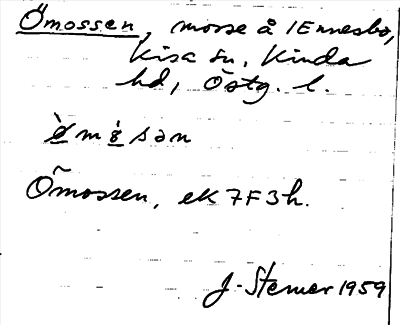 Ömossen, mosse å 1Ennesbo,
Kisa sn, Kinda
hd, Östg. l.
ø̀mø̀sən
Ömossen, ek 7F3h.
J. Stemer 1959